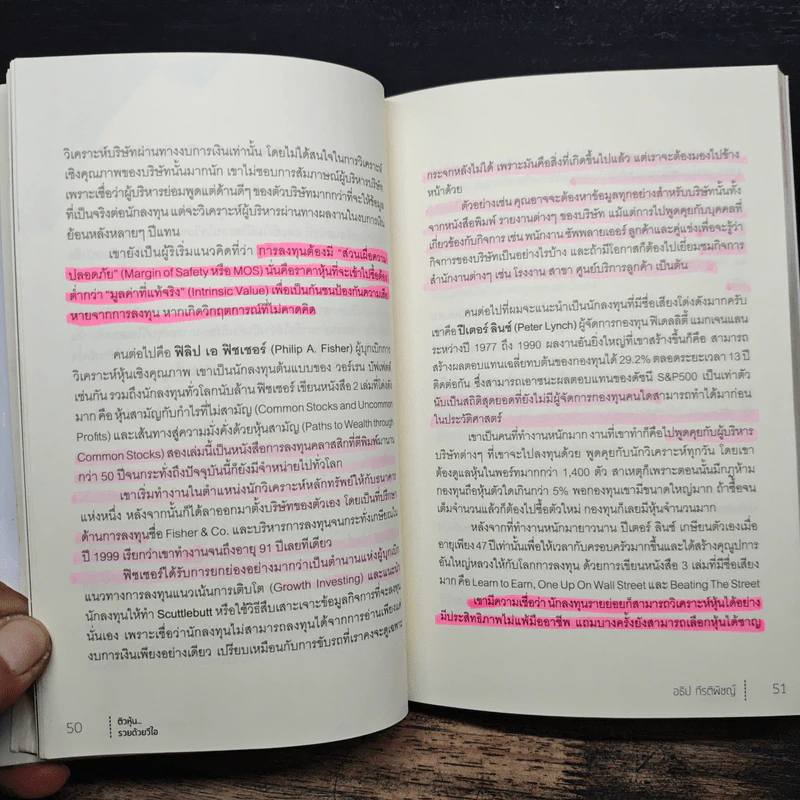 วิเคราะห์บริษัทผ่านทางงบการเงินเท่านั้น โดยไม่ได้สนใจในการวิเคราะห์
เชิงคุณภาพของบริษัทนั้นมากนัก เขาไม่ชอบการสัมภาษณ์ผู้บริหารบริษัท
เพราะเชื่อว่าผู้บริหารย่อมพูดแต่ด้านดีๆ ของตัวบริษัทมากกว่าที่จะให้ข้อมูล
ที่เป็นจริงต่อนักลงทุน แต่จะวิเคราะห์ผู้บริหารผ่านทางผลงานในงบการเงิน
ย้อนหลังหลายๆ ปีแทน
เขายังเป็นผู้ริเริ่มแนวคิดที่ว่า การลงทุนต้องมี "ส่วนเผื่อความ
ปลอดภัย" (Margin of Safety หรือ MOS) นั่นคือราคาหุ้นที่จะเข้าไปซื้อต้อง
ต่ำกว่า "มูลค่าที่แท้จริง" (Intrinsic Value) เพื่อเป็นกันชนป้องกันความเสีย
หายจากการลงทุน หากเกิดวิกฤตการณ์ที่ไม่คาดคิด
คนต่อไปคือ ฟิลิป เอ ฟิชเชอร์ (Philip A. Fisher) ผู้บุกเบิกการ
วิเคราะห์หุ้นเชิงคุณภาพ เขาเป็นนักลงทุนต้นแบบของ วอร์เรน บัฟเฟต์
เช่นกัน รวมถึงนักลงทุนทั่วโลกนับล้าน ฟิชเชอร์ เขียนหนังสือ 2 เล่มที่โด่งดัง
มาก คือ หุ้นสามัญกับกำไรที่ไม่สามัญ (Common Stocks and Uncommon
Profits) และเส้นทางสู่ความมั่งคั่งด้วยหุ้นสามัญ (Paths to Wealth through
Common Stocks) สองเล่มนี้เป็นหนังสือการลงทุนคลาสสิกที่ตีพิมพ์มานาน
กว่า 50 ปีจนกระทั่งปัจจุบันนี้ก็ยังมีจำหน่ายไปทั่วโลก
เขาเริ่มทำงานในตำแหน่งนักวิเคราะห์หลักทรัพย์ให้กับธนาคาร
แห่งหนึ่ง หลังจากนั้นก็ได้ลาออกมาตั้งบริษัทของตัวเอง โดยเป็นที่ปรึกษา
ด้านการลงทุนชื่อ Fisher & Co. และบริหารการลงทุนจนกระทั่งเกษียณใน
ปี 1999 เรียกว่าเขาทำงานจนถึงอายุ 91 ปีเลยทีเดียว
ฟิชเชอร์ได้รับการยกย่องอย่างมากว่าเป็นตำนานแห่งผู้บุกเบิก
แนวทางการลงทุนแนวเน้นการเติบโต (Growth Investing) และแนะนำ
นักลงทุนให้ทำ Scuttlebutt หรือใช้วิธีสืบเสาะเจาะข้อมูลกิจการที่จะลงทุน
นั่นเอง เพราะเชื่อว่านักลงทุนไม่สามารถลงทุนได้จากการอ่านเพียงแค่
งบการเงินเพียงอย่างเดียว เปรียบเหมือนกับการขับรถที่เราคงจะดูเฉพาะ
50
ติวหุ้น...
รวยด้วยวีไอ
กระจกหลังไม่ได้ เพราะมันคือสิ่งที่เกิดขึ้นไปแล้ว แต่เราจะต้องมองไปข้าง
หน้าด้วย
ตัวอย่างเช่น คุณอาจจะต้องหาข้อมูลทุกอย่างสำหรับบริษัทนั้นทั้ง
จากหนังสือพิมพ์ รายงานต่างๆ ของบริษัท แม้แต่การไปพูดคุยกับบุคคลที่
เกี่ยวข้องกับกิจการ เช่น พนักงาน ซัพพลายเออร์ ลูกค้าและคู่แข่งเพื่อจะรู้ว่า
กิจการของบริษัทเป็นอย่างไรบ้าง และถ้ามีโอกาสก็ต้องไปเยี่ยมชมกิจการ
สำนักงานต่างๆ เช่น โรงงาน สาขา ศูนย์บริการลูกค้า เป็นต้น
คนต่อไปที่ผมจะแนะนำเป็นนักลงทุนที่มีชื่อเสียงโด่งดังมากครับ
เขาคือ ปีเตอร์ ลินซ์ (Peter Lynch) ผู้จัดการกองทุน ฟิเดลลิตี้ แมกเจนแลน
ระหว่างปี 1977 ถึง 1990 ผลงานอันยิ่งใหญ่ที่เขาสร้างขึ้นก็คือ สามารถ
สร้างผลตอบแทนเฉลี่ยทบต้นของกองทุนได้ 29.2% ตลอดระยะเวลา 13 ปี
ติดต่อกัน ซึ่งสามารถเอาชนะผลตอบแทนของดัชนี S&P500 เป็นเท่าตัว
นับเป็นสถิติสุดยอดที่ยังไม่มีผู้จัดการกองทุนคนใดสามารถทำได้มาก่อน
ในประวัติศาสตร์
เขาเป็นคนที่ทำงานหนักมาก งานที่เขาทำก็คือไปพูดคุยกับผู้บริหาร
บริษัทต่างๆ ที่เขาจะไปลงทุนด้วย พูดคุยกับนักวิเคราะห์ทุกวัน โดยเขา
ต้องดูแลหุ้นในพอร์ทมากกว่า 1,400 ตัว สาเหตุก็เพราะตอนนั้นมีกฎห้าม
กองทุนถือหุ้นตัวใดเกินกว่า 5% พอกองทุนเขามีขนาดใหญ่มาก ถ้าซื้อจน
เต็มจำนวนแล้วก็ต้องไปซื้อตัวใหม่ กองทุนก็เลยมีหุ้นจำนวนมาก
หลังจากที่ทำงานหนักมายาวนาน ปีเตอร์ ลินซ์ เกษียนตัวเองเมื่อ
อายุเพียง 47 ปีเท่านั้นเพื่อให้เวลากับครอบครัวมากขึ้นและได้สร้างคุณูปการ
อันใหญ่หลวงให้กับโลกการลงทุน ด้วยการเขียนหนังสือ 3 เล่มที่มีชื่อเสียง
มาก คือ Learn to Earn, One Up On Wall Street และ Beating The Street
เขามีความเชื่อว่า นักลงทุนรายย่อยก็สามารถวิเคราะห์หุ้นได้อย่าง
มีประสิทธิภาพไม่แพ้มืออาชีพ แถมบางครั้งยังสามารถเลือกหุ้นได้ชาญ
อธิป กีรติพิชญ์
51